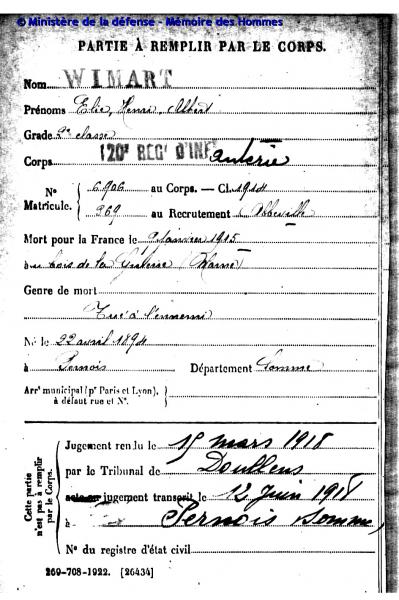 © Ministère de la défense - Mémoire des Hommes
PARTIE À REMPLIR PAR LE CORPS.
Nom WIMART
Prénoms Elie, Henri, Albert
Grade 2e classe
Corps 120e REG' D'INFanterie
N° Matricule. { 6.906 au Corps. — Cl. 1914
369 au Recrutement Abbeville
Mort pour la France le 9 janvier 1915
au bois de la Gruerie (Marne)
Genre de mort
Tué à l'ennemi
Né le 22 avril 1894
à Pernois Département Somme
Arrt municipal (pr Paris et Lyon), à défaut rue et N°. }
Cette partie n'est pas à remplir par le Corps.
Jugement rendu le 15 mars 1918
par le Tribunal de Doullens
jugement transcrit le 12 Juin 1918
à Pernois Somme
N° du registre d'état civil
269-708-1922. [26434]